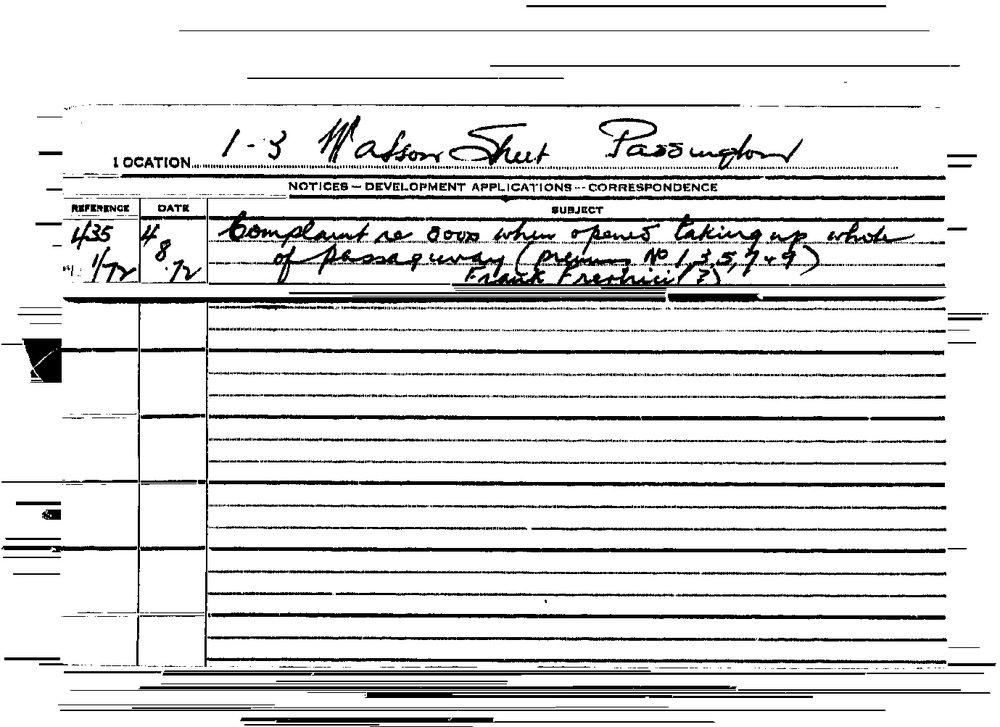 LOCATION 1-3 Watson Street Paddington
NOTICES — DEVELOPMENT APPLICATIONS — CORRESPONDENCE
REFERENCE DATE SUBJECT
435 4 Complaint re doors when opened taking up whole
1/72 8 of passageway (premises No 1, 3, 5, 7 & 9)
72 Frank (?)